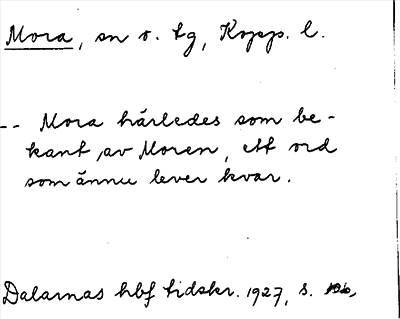 Mora, sn o. tg, Kopp. l.
-- Mora härledes som be-
kant av Moren, ett ord
som ännu lever kvar.
Dalarnas hbf tidskr. 1927, s.